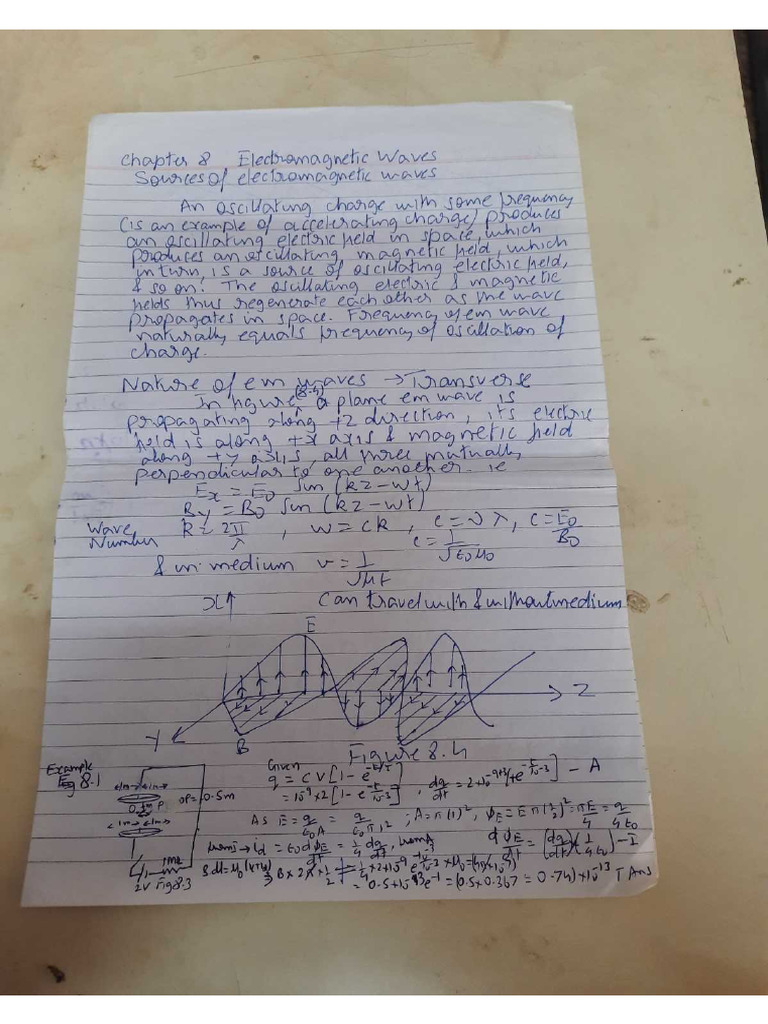 Chapter 8 Electromagnetic Waves
Sources of electromagnetic waves
An oscillating charge with some frequency
(is an example of accelerating charge) produces
an oscillating electric field in space, which
produces an oscillating magnetic field, which
in turn, is a source of oscillating electric field,
& so on. The oscillating electric & magnetic
fields thus regenerate each other as the wave
propagates in space. Frequency of em wave
naturally equals frequency of oscillation of
charge.
Nature of em waves → Transverse
In figure (8.4) a plane em wave is
propagating along +z direction, its electric
field is along +x axis & magnetic field
along +y axis, all three mutually
perpendicular to one another. ie
Ex = E0 sin (kz - wt)
By = B0 sin (kz - wt)
Wave Number k = 2π/λ , w = ck, c = νλ, c = E0/B0
c = 1/√ε0μ0
& in medium v = 1/√με
x↑ Can travel with & without medium
E
Z
Y
B
Figure 8.4
Example
Fig 8.1
Given
q = CV[1 - e^-t/τ]
= 10^-9 × 2[1 - e^-t/10^-3],
- A
OP = 0.5m
P
As E = q/ε0A = q/ε0π1²; A = π(1)², φE = Eπ(1/2)² = πE/4 = q/4ε0
id = ε0 dφE/dt = 1/4 dq/dt, from A
dφE/dt = (dq/dt)(1/4ε0) - I
2V Fig 8.3
1MΩ
= (0.5×0.367 = 0.74)×10^-13 T Ans